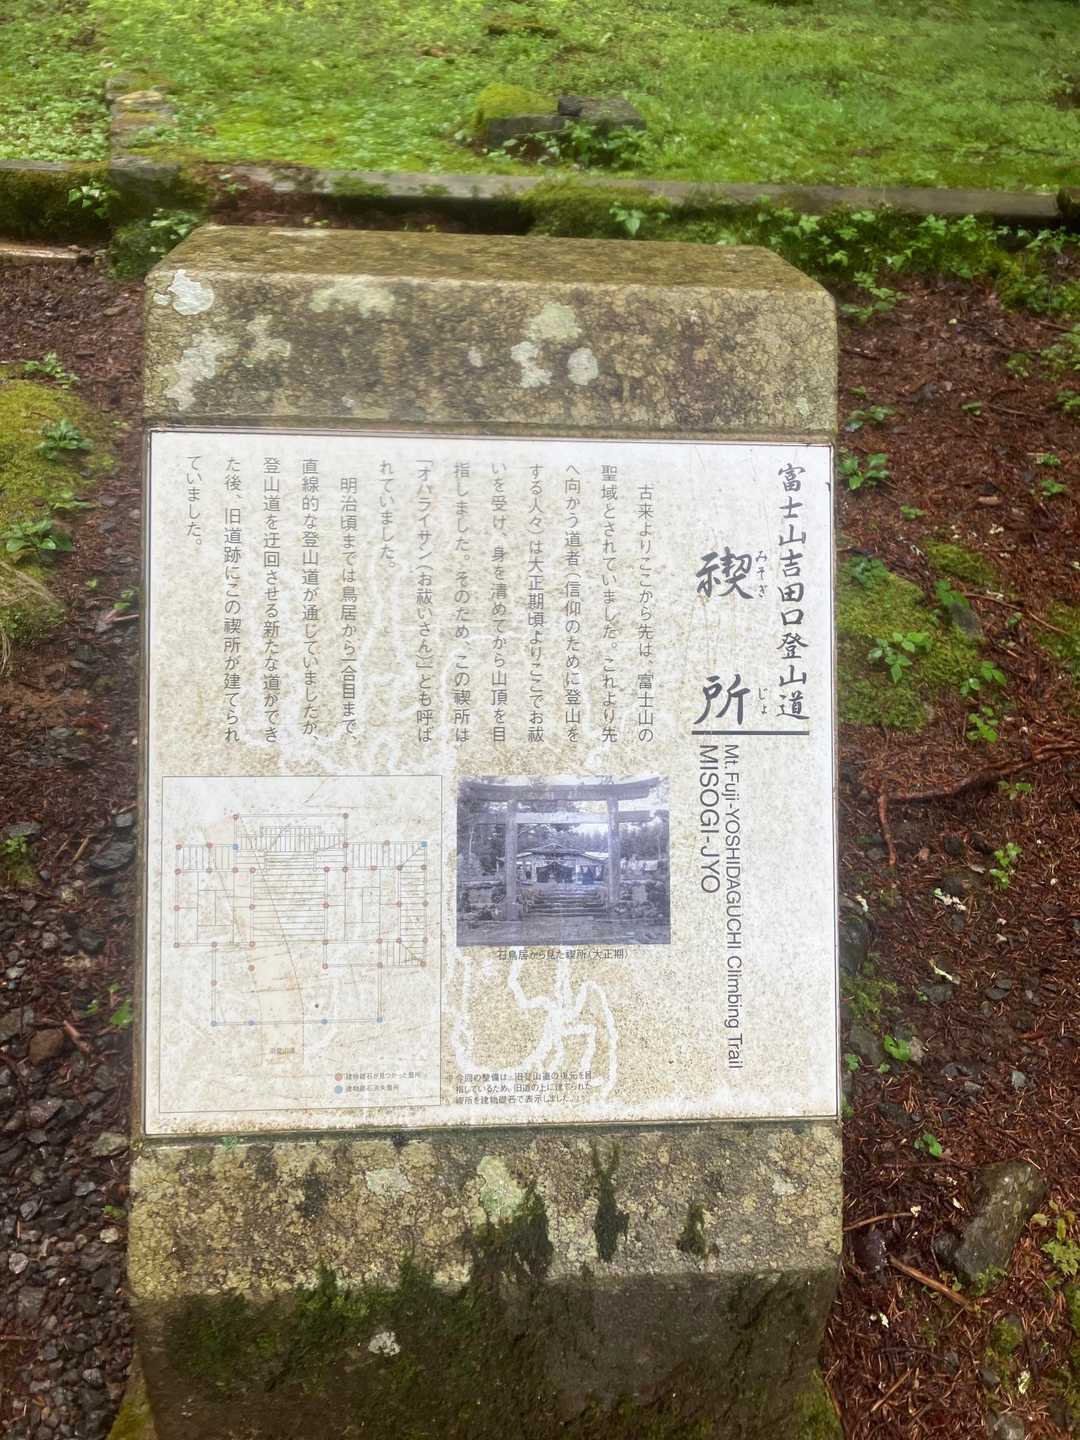 富士山吉田口登山道
禊所
みそぎ
じょ
Mt.Fuji-YOSHIDAGUCHI Climbing Trail
MISOGI-JYO
古来よりここから先は、富士山の
聖域とされていました。これより先
へ向かう道者（信仰のために登山を
する人々）は大正期頃よりここでお祓
いを受け、身を清めてから山頂を目
指しました。そのため、この禊所は
「オハライサン（お祓いさん）」とも呼ば
れていました。
明治頃までは鳥居から一合目まで、
直線的な登山道が通じていましたが、
登山道を迂回させる新たな道ができ
た後、旧道跡にこの禊所が建てられ
ていました。
石鳥居から見た禊所（大正期）
今回の整備は、旧登山道の復元を目
指しているため、旧道の上に建てられた
禊所を建物礎石で表示しました。
旧登山道
建物礎石が見つかった箇所
建物礎石消失箇所